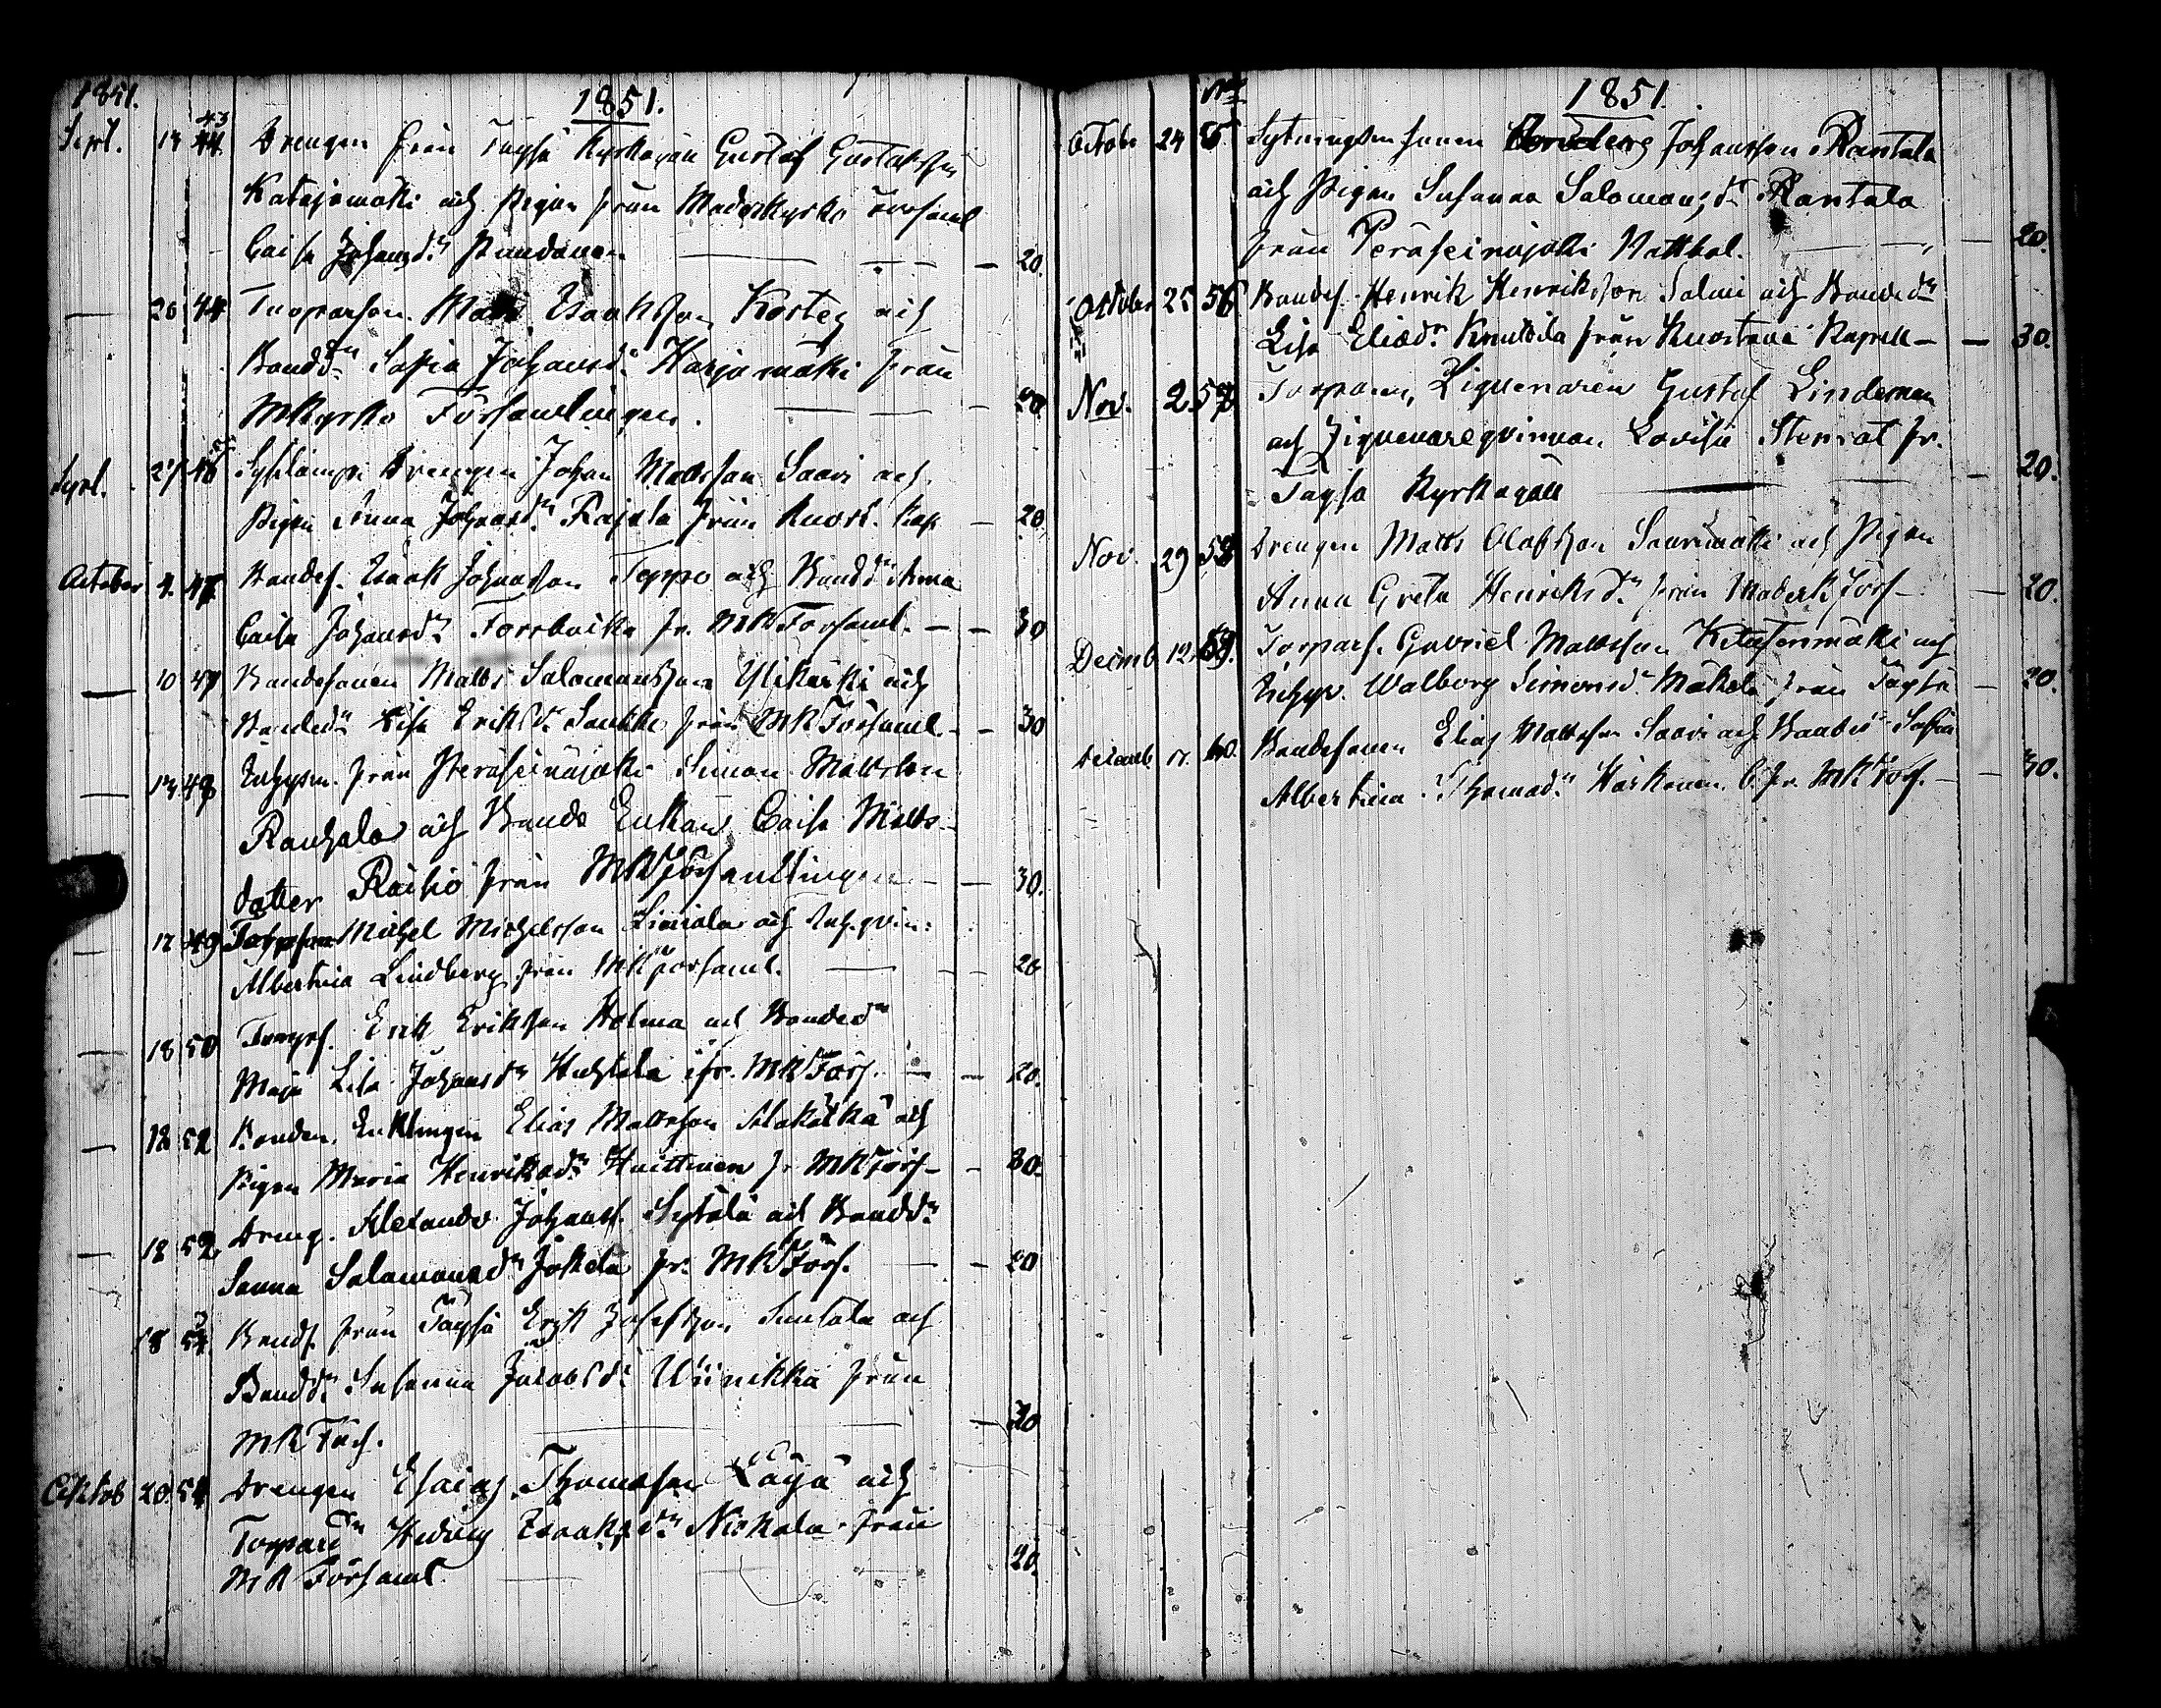 1851.
1851.
43
Sept. 13 44. Drengen från Töysä Kyrkogäll Gustaf Gustafsson
Katajamäki och Pigan från Moderkyrko församl
Caisa Johansdr — 20.
— 20 44 Torparson. Matts Isaaksson Kortes och
Bondd:r Sofia Johansd:r Harjamäki från
MKyrko Församlingen. — 20
Sept. 27 46 Drengen Johan Mattsson Saari och
Pigan Anna Johansd:r Rajala från Kuort. Kap — 20
October 4. 47 Bondes. Isaak Johansson Teppo och Bondd:r Anna
Caisa Johansd:r Torrbacka fr. MK Församl. — — 30
— 10 47 Bondesonen Matts Salomonsson Ylikoski och
Bonded:r Lisa Eriksd:r från MK Församl. — — 30
— 13 48 Inhysn. från Peräseinäjoki Simon Mattsson
Rauhala och Bonde Enkan Caisa Matts-
dotter Raisio från MK Församlingen — — 30.
— 17 49 Michel Michelsson och Inh.qvin:
Albertina Lindberg från MK Församl. — — 20
— 18 50 Torps. Erik Eriksson Holma och Bonded:r
Maja Lisa Johansd:r Huhtala fr. MK Förs. — — 20.
— 18 52 Bonden, Enklingen Elias Mattsson Alakötkä och
Pigan Maria Henriksd:r Huittinen fr MK Förs — — 30.
— 18 52 Dreng. Alexander Johanss. Sytälä och Bondd:r
Sanna Salomonsd:r Jokela fr. MK Förs. — — 20
18 54 3 Bonds. från Töysä Erik Josefsson och
Bondd:r Susanna Jacobsd:r Wiinikka från
MK Förs. — 30
Octob 20. 54 Drengen Esaias Thomasson och
Torpared:r Hedvig Isaaksd:r Niskala från
MK Församl. — 20.
No
1851.
October 24 Sytningsm sonen Johansson Rantala
och Pigan Susanna Salomonsd:r Rantala
från Peräseinäjoki — 20.
October 25 56 Bondes. Henrik Henriksson Salmi och Bonded:r
Lisa Eliæd:r från Kuortane Kapell — — 30.
Nov. 2. 57 Torparen, Ziguenaren Gustaf Lindeman
och Ziguenareqvinnan Lovisa Stenrot fr.
Töysä Kyrkogäll — 20.
Nov. 29 58 Drengen Matts Olofsson Saarimäki och Pigan
Anna Greta Henriksd:r från Moderk Förs — — 20.
Decemb. 12. 59. Torpars. Gabriel Mattsson och
Inhyv. Walborg Simonsd:r Mäkelä från Töysä — 20.
Decemb. 17. 60. Bondesonen Elias Mattsson Saari och Bonded:r Sofia
Albertina Thomasd:r Härkönen fr. MK Förs. — — 30.